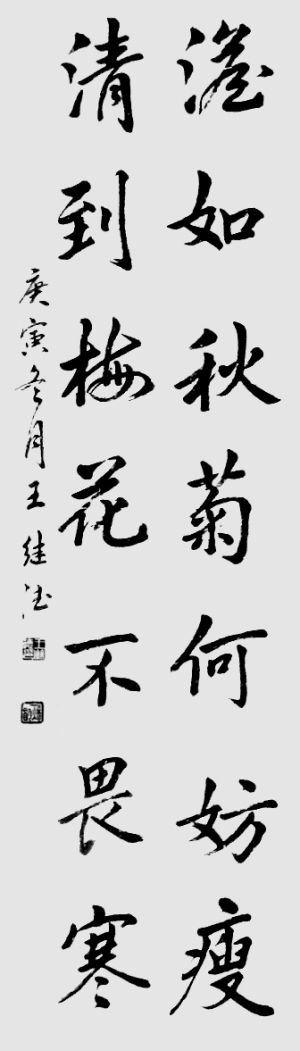 澹如秋菊何妨瘦
清到梅花不畏寒
庚寅冬月王继法